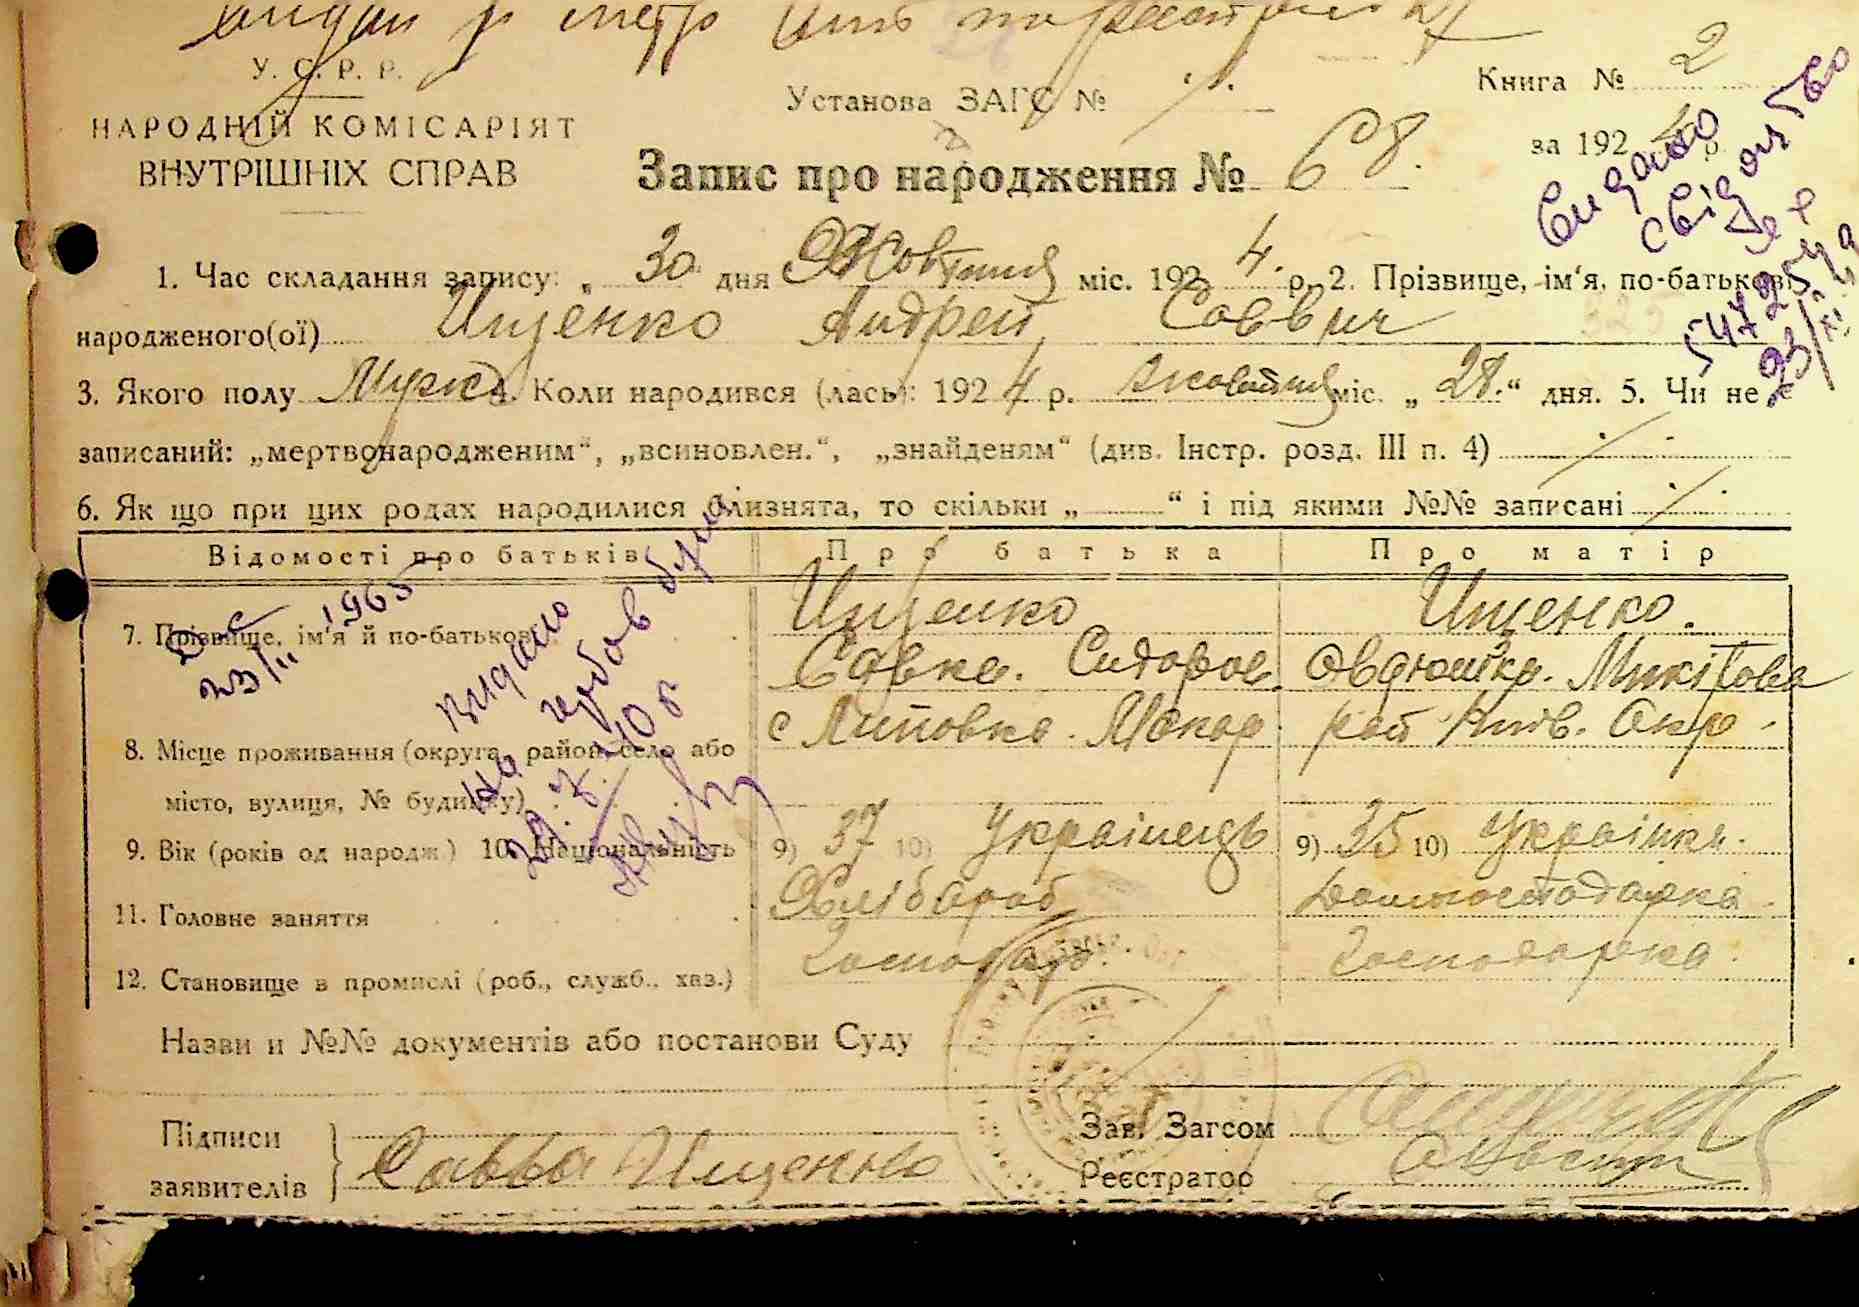 У. С. Р. Р.
НАРОДНІЙ КОМІСАРІЯТ
ВНУТРІШНІХ СПРАВ
Установа ЗАГС №
Книга № 2
за 192 4 р.
Запис про народження № 68.
Видано
свідоцтво
23/II
1. Час складання запису: „ 30 дня Жовтня міс. 192 4. р. 2. Прізвище, ім‘я, по-батькові
народженого(ої) Ищенко Андрей Саввич
3. Якого полу Мужс. 4. Коли народився (лась): 192 4 р. жовтня міс. „ 28. “ дня. 5. Чи не є
записаний: „мертвонародженим“, „всиновлен.“, „знайденям“ (див. Інстр. розд. III п. 4)
6. Як що при цих родах народилися близнята, то скільки „ “ і під якими №№ записані
Відомості про батьків Про батька Про матір
7. Прізвище, ім‘я й по-батькові Ищенко Ищенко.
Савка. Сидоров. Овдюшка. Микітова
с Липовка. Макар рай Київ. Окр.
8. Місце проживання (округа, район, село або
місто, вулиця, № будинку)
9. Вік (років од народж.) 10. Національність 9) 37 10) Українець 9) 35 10) Українка.
11. Головне заняття Хлібороб Домогосподарка
12. Становище в промислі (роб., служб., хаз.) Господар. Господарка.
23/II 1965
видано
Назви и №№ документів або постанови Суду
Підписи
заявителів Савва Ищенко
Зав. Загсом
Реєстратор